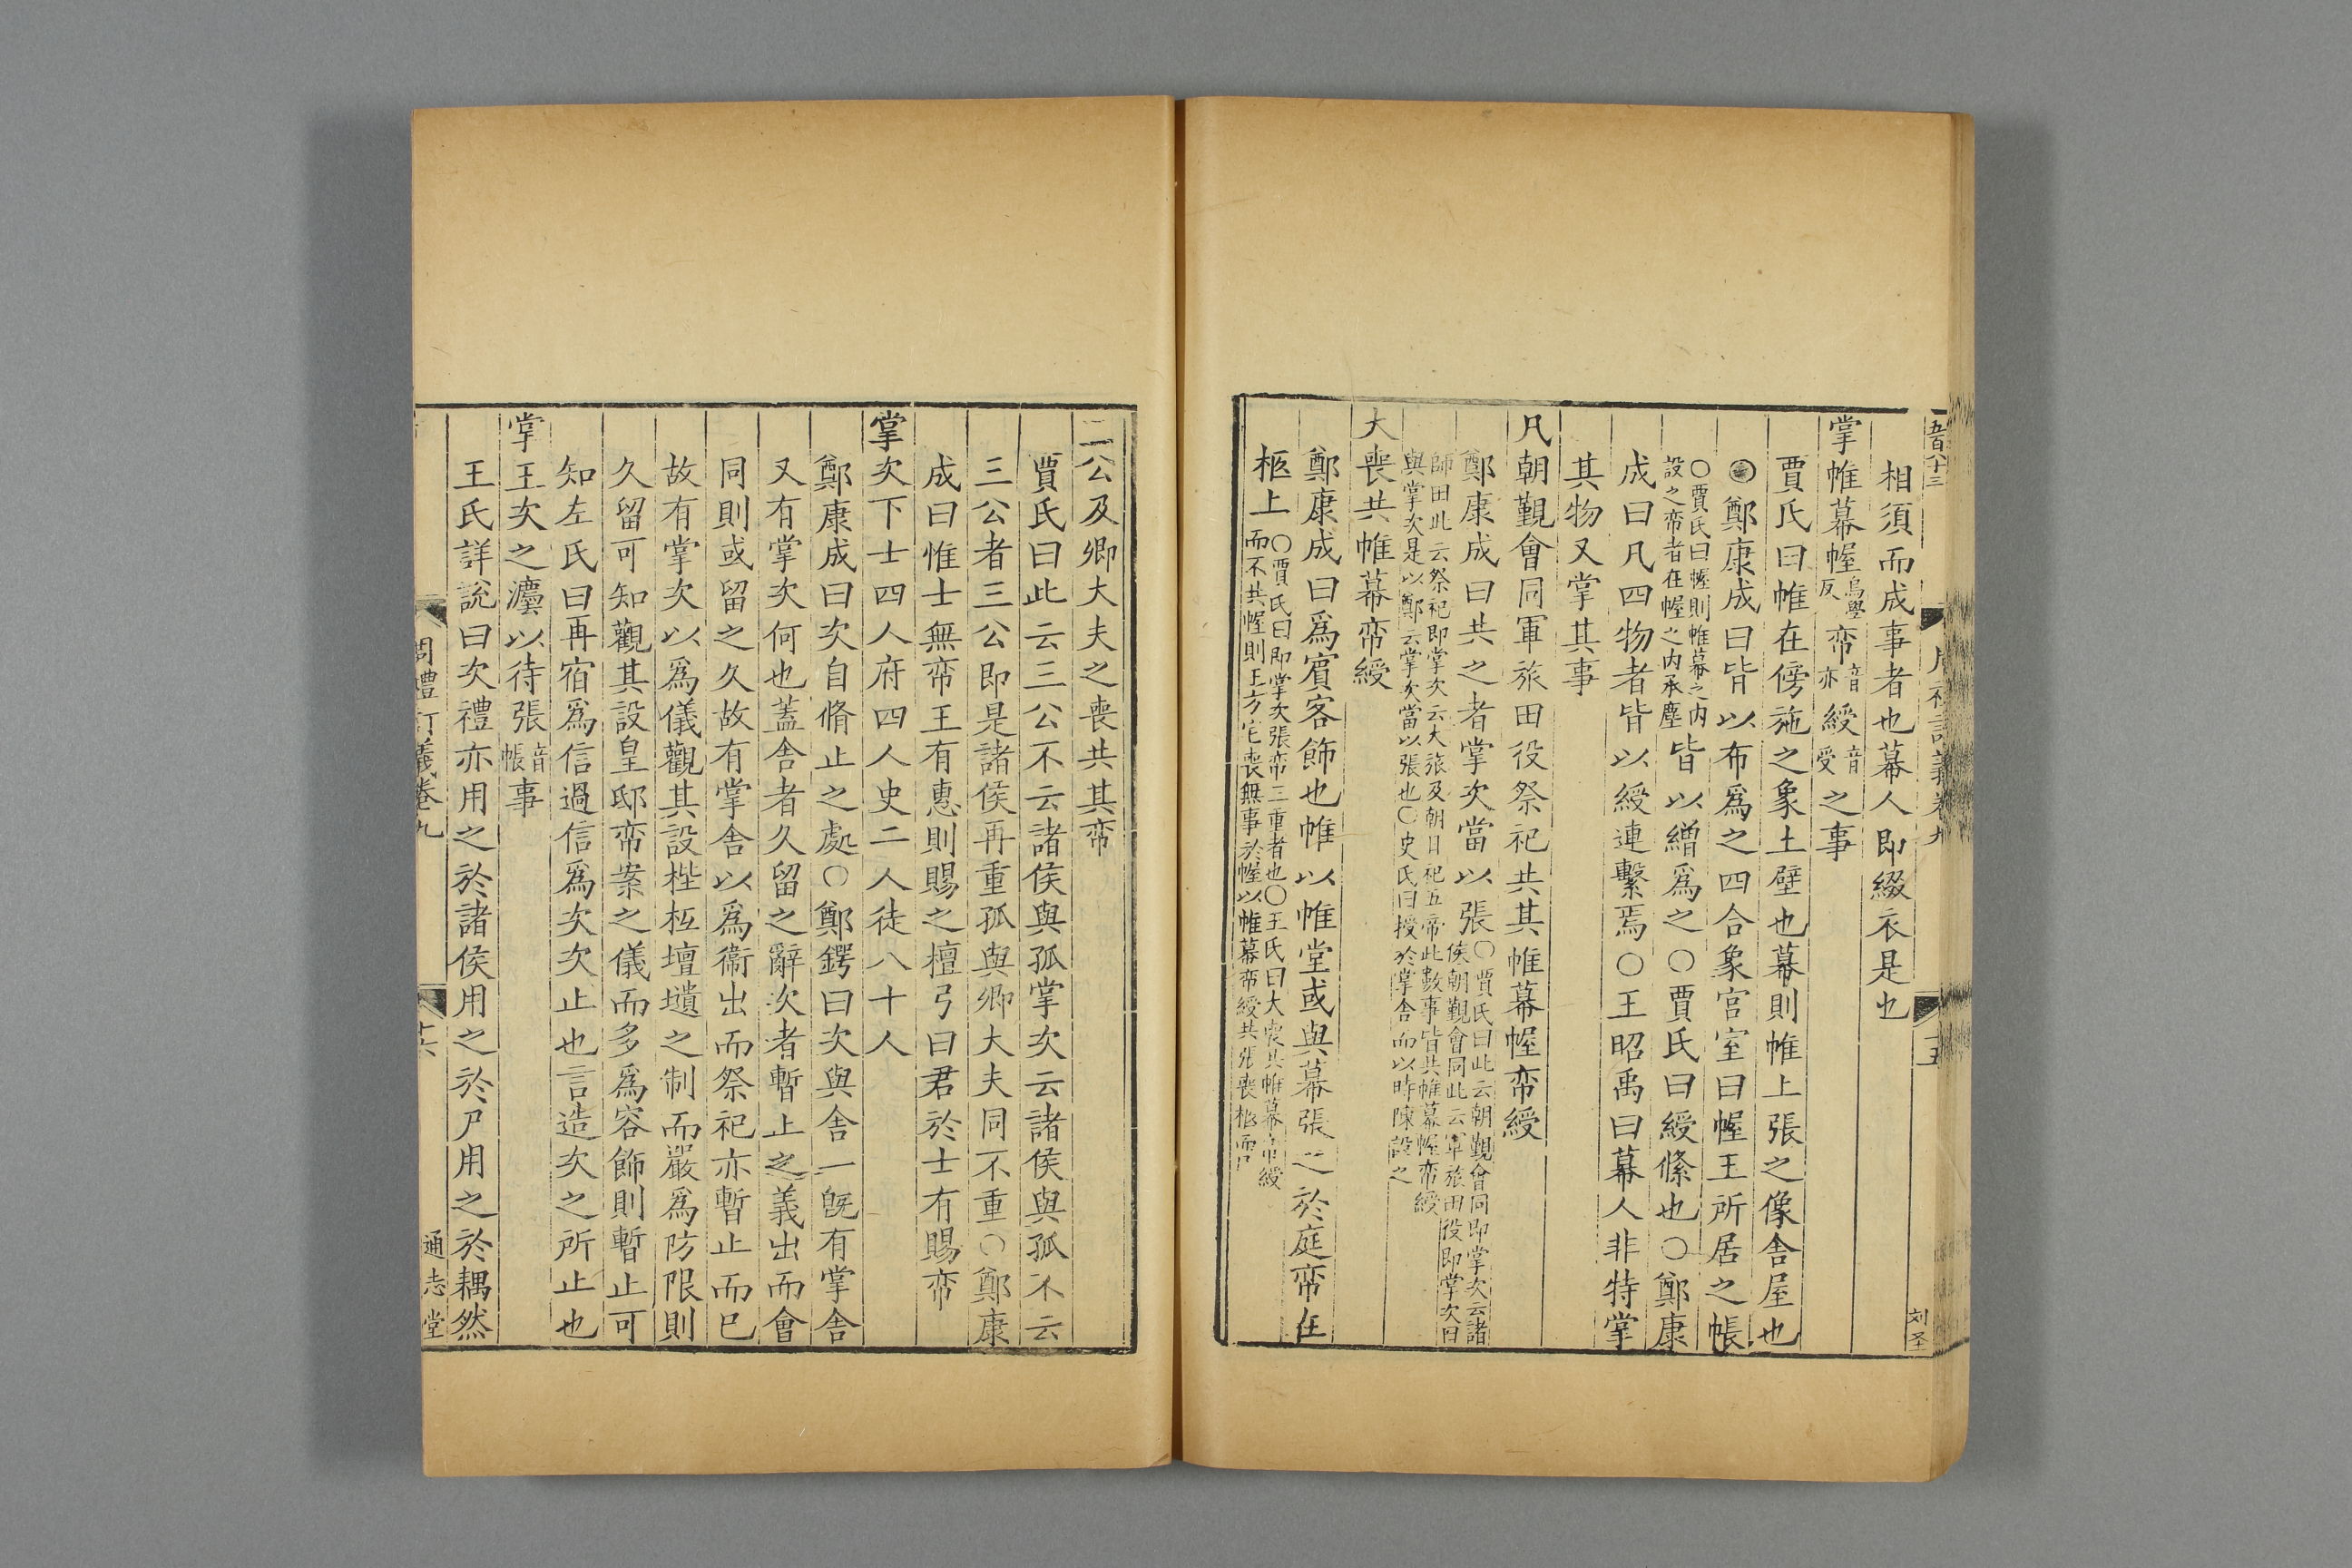 五百八十三
周禮訂義卷九
十五
刘圣
相須而成事者也幕人即綴衣是也
掌帷幕幄烏學反帟音亦綬音受之事
賈氏曰帷在傍施之象土壁也幕則帷上張之像舍屋也
鄭康成曰皆以布爲之四合象宫室曰幄王所居之帳
○賈氏曰幄則帷幕之内設之帟者在幄之内承塵皆以繒爲之○賈氏曰綬絛也○鄭康
成曰凡四物者皆以綬連繫焉○王昭禹曰幕人非特掌
其物又掌其事
凡朝覲會同軍旅田役祭祀共其帷幕幄帟綬
鄭康成曰共之者掌次當以張○賈氏曰此云朝覲會同即掌次云諸
侯朝覲會同此云軍旅田役即掌次曰
師田此云祭祀即掌次云大旅及朝日祀五帝此數事皆共帷幕幄帟綬
與掌次是以鄭云掌次當以張也○史氏曰授於掌舍而以時陳設之
大喪共帷幕帟綬
鄭康成曰爲賓客飾也帷以帷堂或與幕張之於庭帟在
柩上○賈氏曰即掌次張帟三重者也○王氏曰大喪共帷幕帟綬
而不共幄則王方宅喪無事於幄以帷幕帟綬共張喪柩而已
三公及卿大夫之喪共其帟
賈氏曰此云三公不云諸侯與孤掌次云諸侯與孤不云
三公者三公即是諸侯再重孤與卿大夫同不重○鄭康
成曰惟士無帟王有惠則賜之檀弓曰君於士有賜帟
掌次下士四人府四人史二人徒八十人
鄭康成曰次自脩止之處○鄭鍔曰次與舍一旣有掌舍
又有掌次何也蓋舍者久留之辭次者暫止之義出而會
同則或留之久故有掌舍以爲衞出而祭祀亦暫止而已
故有掌次以爲儀觀其設梐枑壇壝之制而嚴爲防限則
久留可知觀其設皇邸帟案之儀而多爲容飾則暫止可
知左氏曰再宿爲信過信爲次次止也言造次之所止也
掌王次之灋以待張音帳事
王氏詳說曰次禮亦用之於諸侯用之於尸用之於耦然
周禮訂義卷九
十六
通志堂